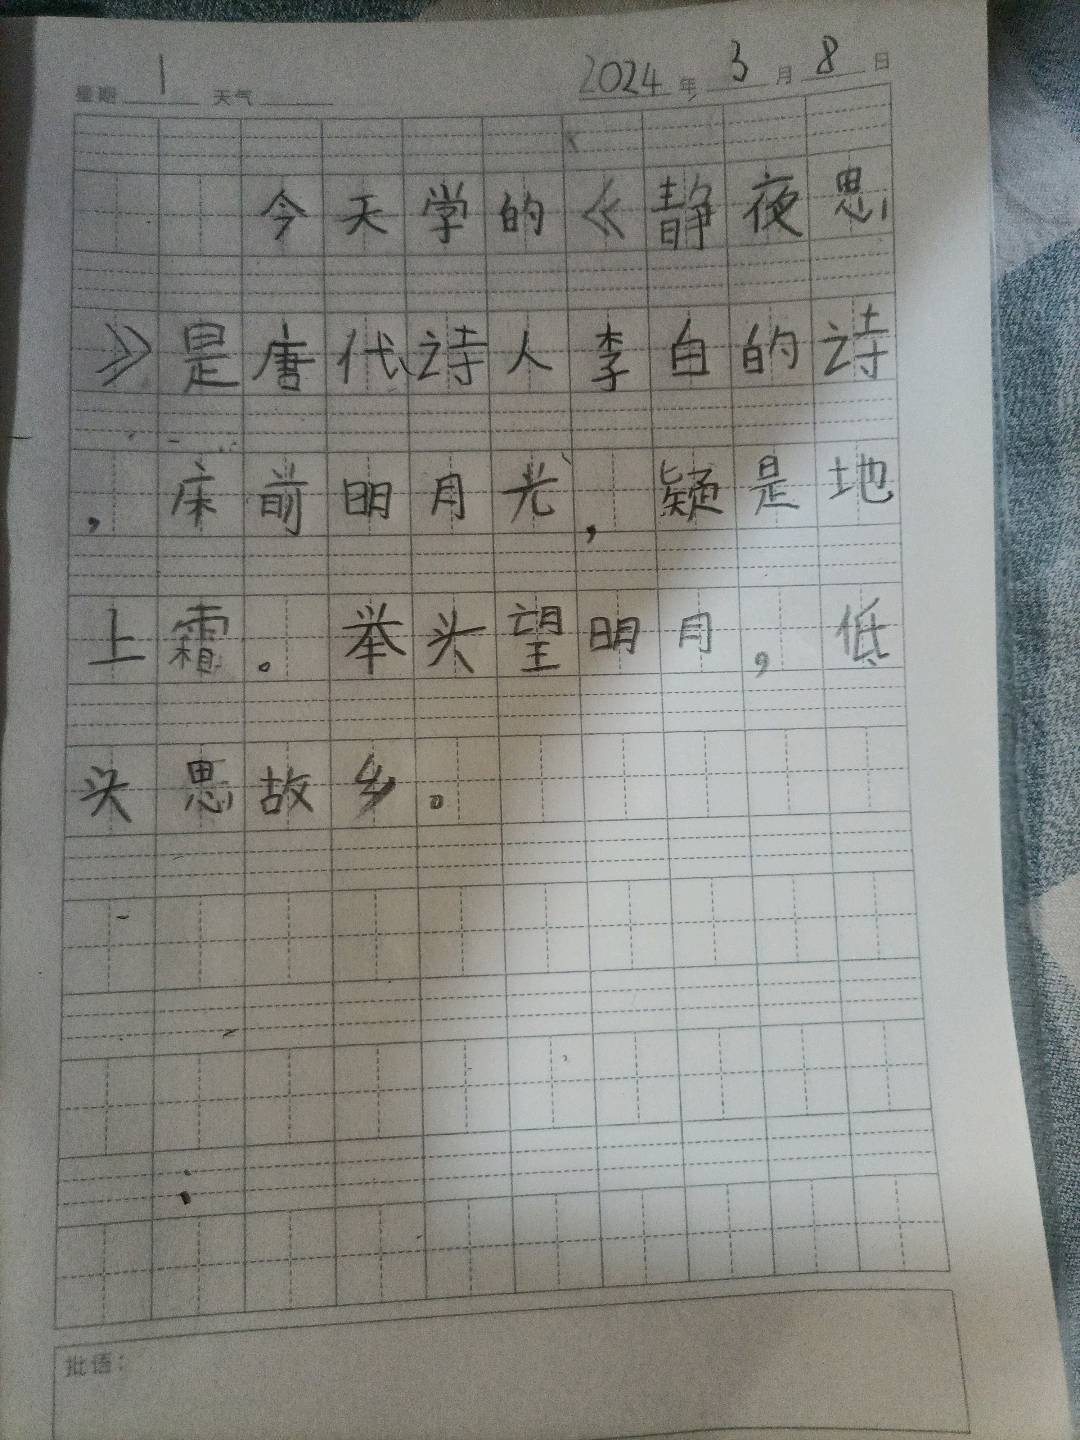 星期 1 天气 2024 年 3 月 8 日
今天学的《静夜思
》是唐代诗人李白的诗
，床前明月光，疑是地
上霜。举头望明月，低
头思故乡。
批语：